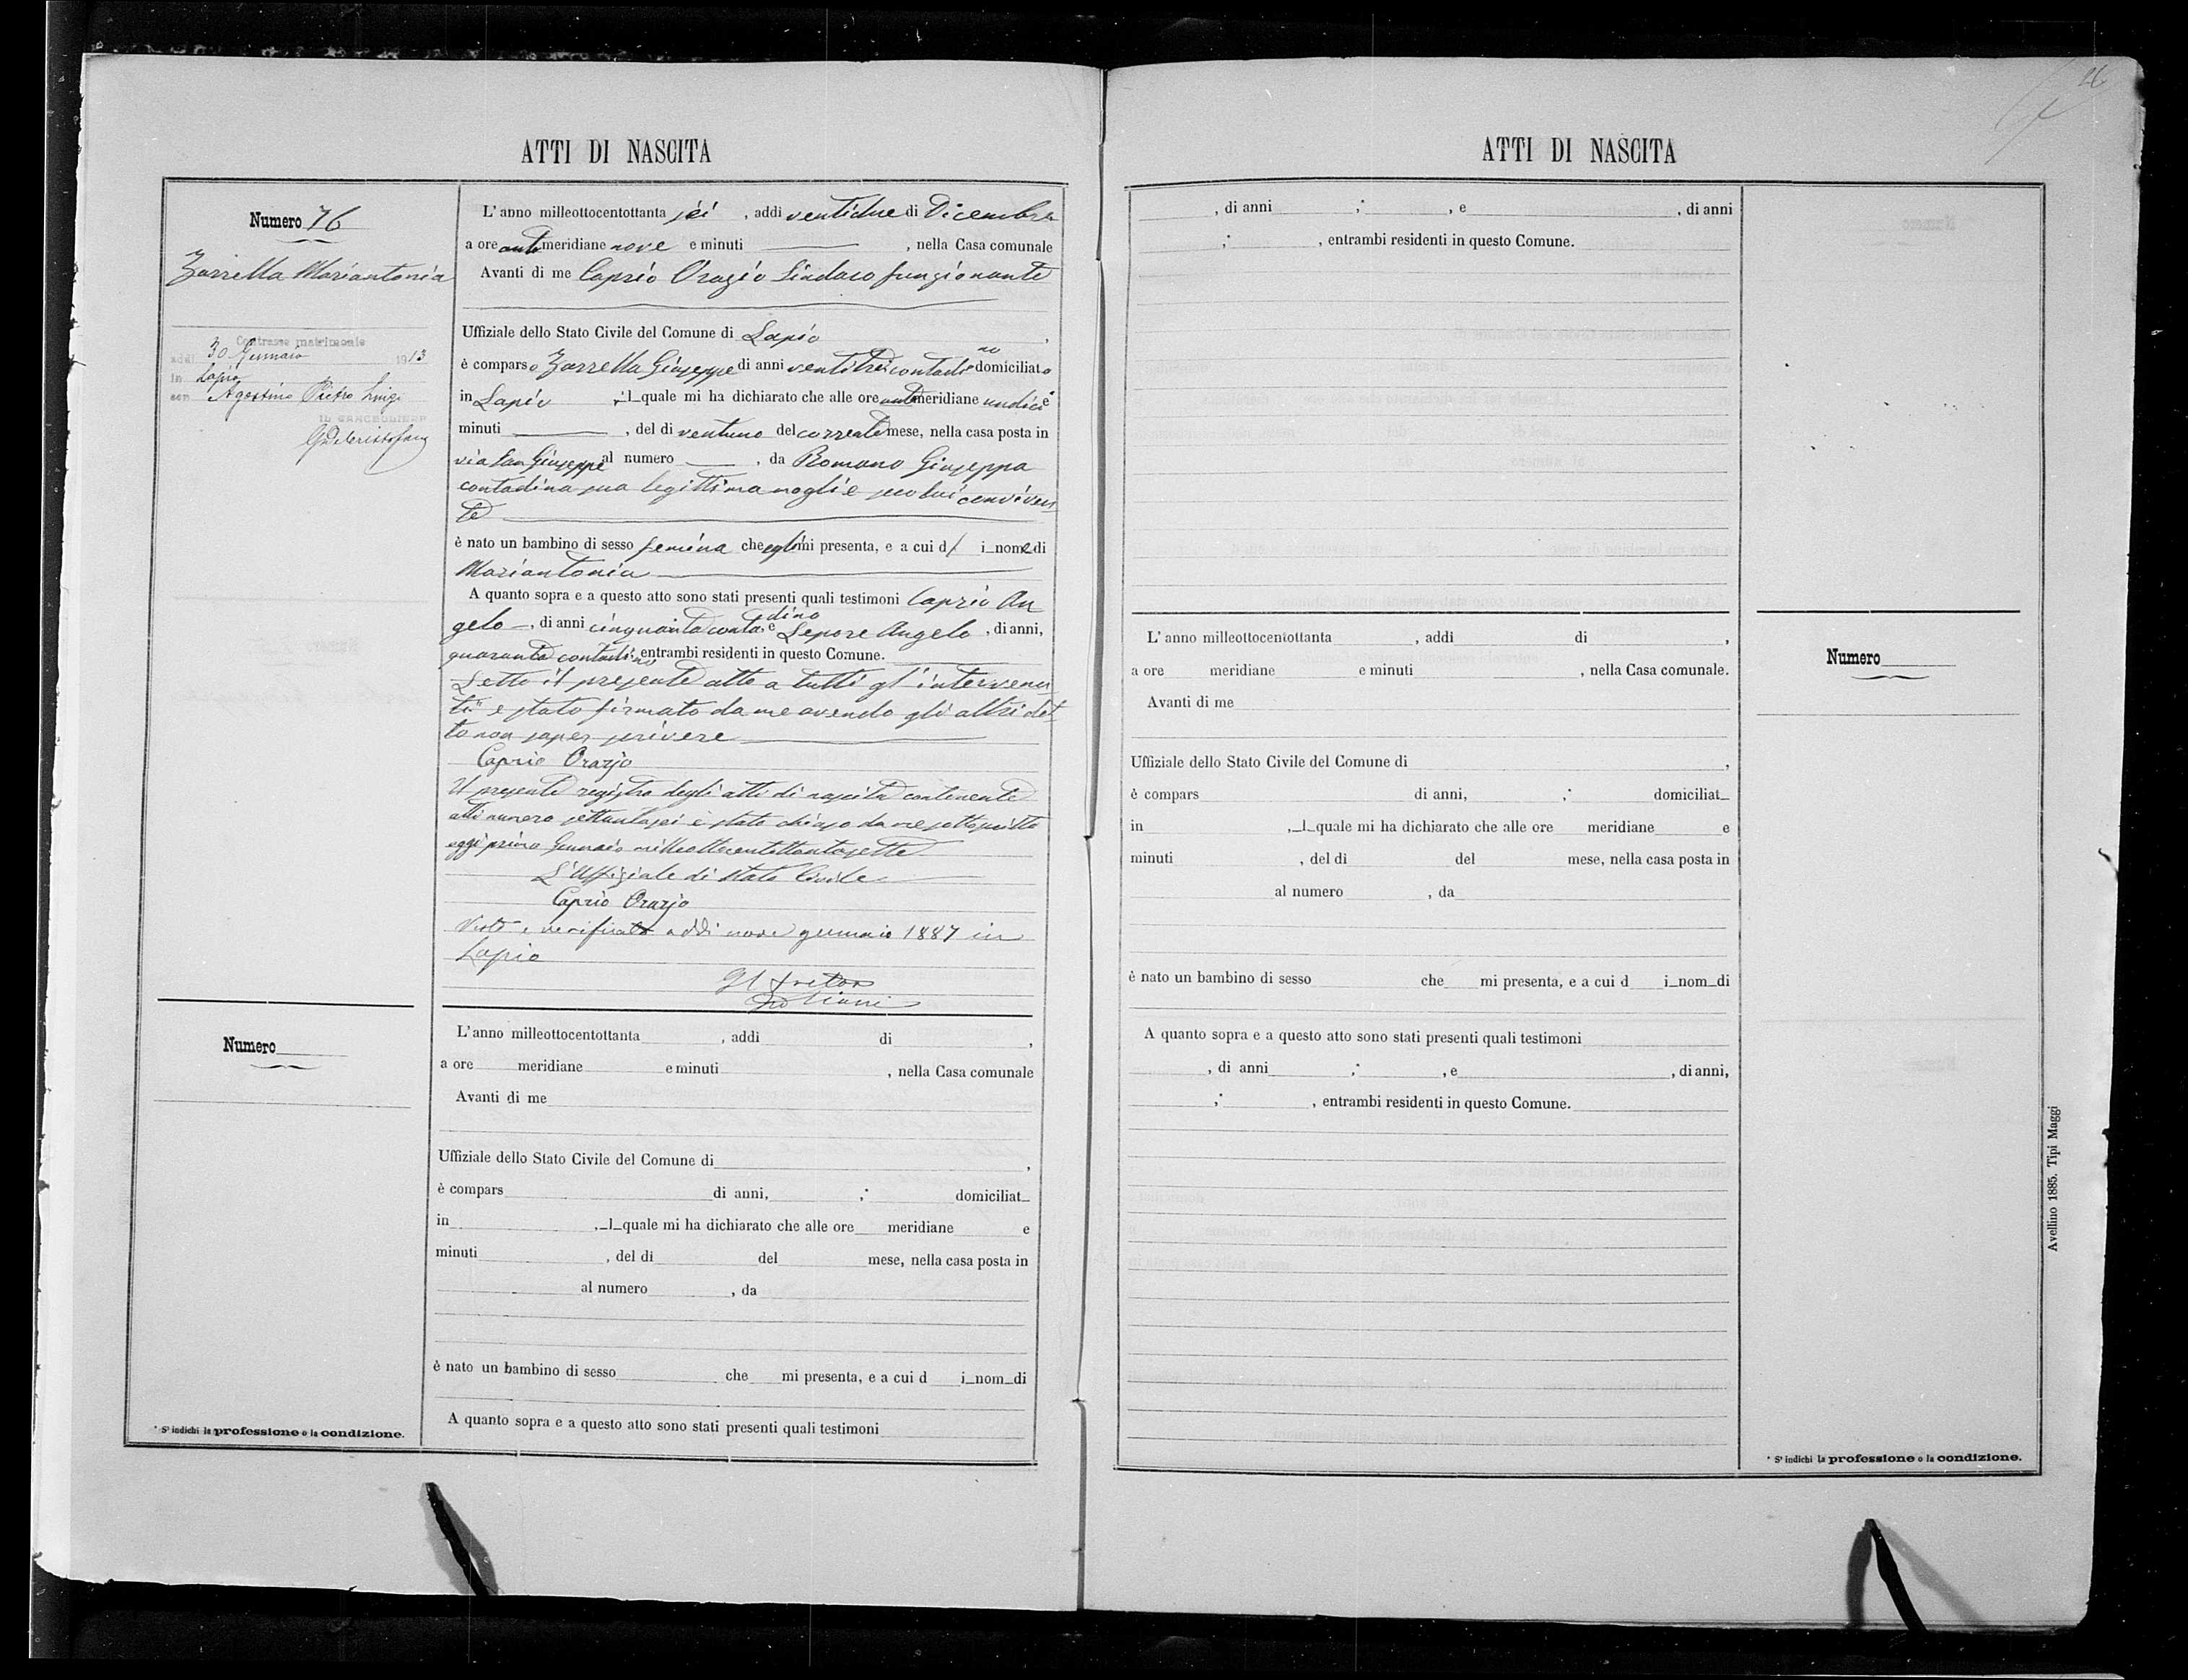 ATTI DI NASCITA
Numero 76
Zarrella Mariantonia
Contrasse matrimonio
addi 30 Gennaio 1913
in Lapio
con Agostino Pietro Luigi
IL CANCELLIERE
L'anno milleottocentottanta sei, addi ventidue di Dicembre
a ore antimeridiane nove e minuti ——, nella Casa comunale
Avanti di me Caprio Orazio Sindaco funzionante
Uffiziale dello Stato Civile del Comune di Lapio,
è comparso Zarrella Giuseppe di anni ventitrei contadino domiciliato
in Lapio, il quale mi ha dichiarato che alle ore antimeridiane undici e
minuti ——, del di ventuno del corrente mese, nella casa posta in
via San Giuseppe al numero ——, da Romano Giuseppa
contadina sua legittima moglie seco lui conviven
te
è nato un bambino di sesso femina che egli mi presenta, e a cui dà i_nome di
Mariantonia
A quanto sopra e a questo atto sono stati presenti quali testimoni Caprio An
gelo, di anni cinquanta contadino, e Lepore Angelo, di anni,
quaranta contadino, entrambi residenti in questo Comune.
Letto il presente atto a tutti gl'intervenu
ti è stato firmato da me avendo gli altri det
to non saper scrivere
Caprio Orazio
Il presente registro degli atti di nascita contenente
atti numero settantasei è stato chiuso da me sottoscritto
oggi primo Gennaio milleottocentottantasette
L'Uffiziale di Stato Civile
Caprio Orazio
Visto e verificato addi nove gennaio 1887 in
Lapio
Il Pretore
Numero
L'anno milleottocentottanta , addi di ,
a ore meridiane e minuti , nella Casa comunale
Avanti di me
Uffiziale dello Stato Civile del Comune di ,
è compars di anni, ,* domiciliat_
in ,_l_quale mi ha dichiarato che alle ore meridiane e
minuti , del di del mese, nella casa posta in
al numero , da
è nato un bambino di sesso che mi presenta, e a cui d i_nom_di
A quanto sopra e a questo atto sono stati presenti quali testimoni
* S'indichi la professione o la condizione.
ATTI DI NASCITA
, di anni ;* , e , di anni
;* , entrambi residenti in questo Comune.
L'anno milleottocentottanta , addi di ,
a ore meridiane e minuti , nella Casa comunale.
Avanti di me
Uffiziale dello Stato Civile del Comune di ,
è compars di anni, ,* domiciliat_
in ,_l_quale mi ha dichiarato che alle ore meridiane e
minuti , del di del mese, nella casa posta in
al numero , da
è nato un bambino di sesso che mi presenta, e a cui d i_nom_di
A quanto sopra e a questo atto sono stati presenti quali testimoni
, di anni ;* , e , di anni,
,* , entrambi residenti in questo Comune.
Numero
* S'indichi la professione o la condizione.
Avellino 1885. Tipi Maggi